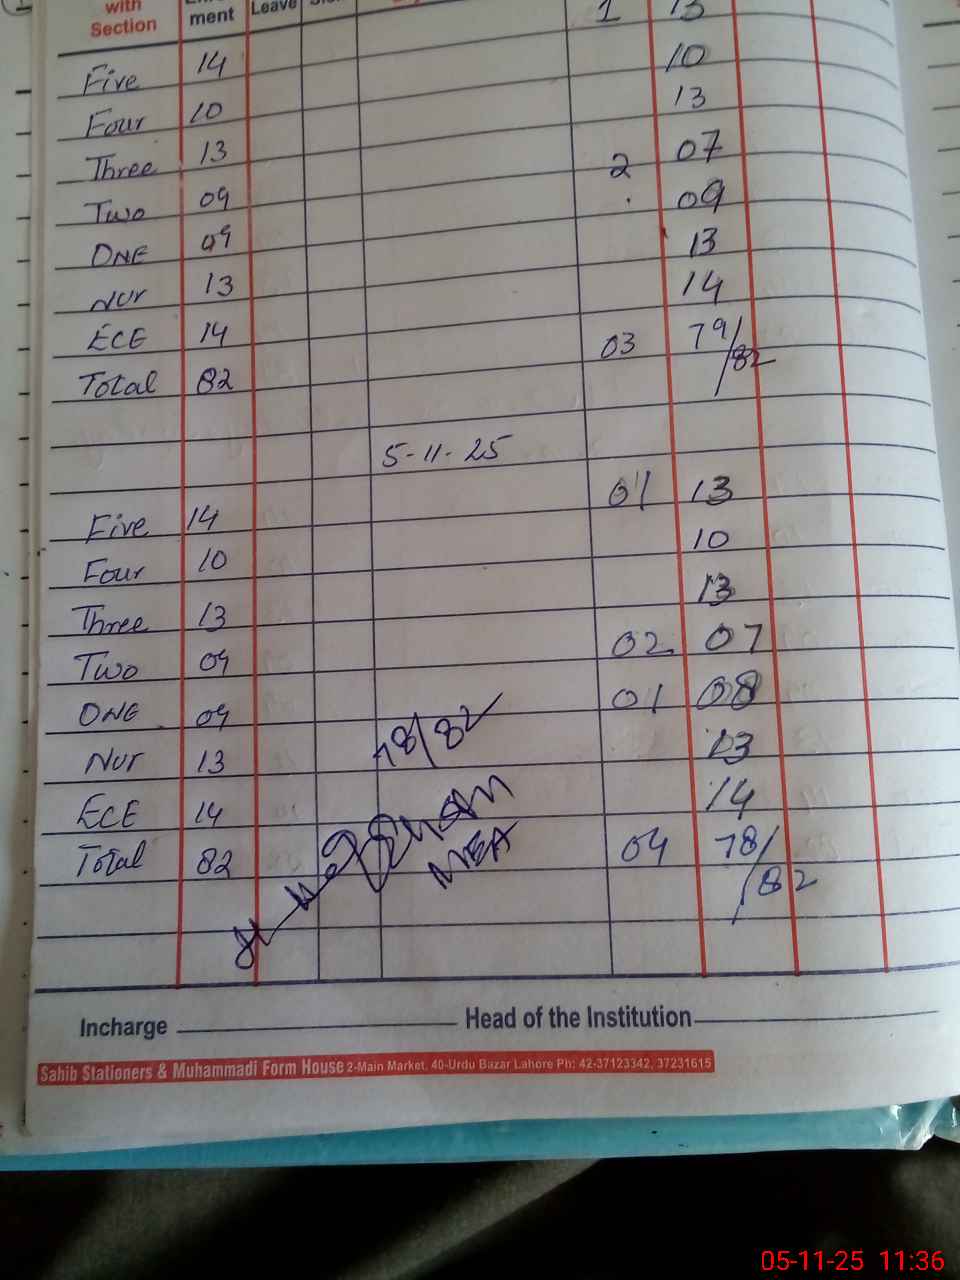 with ment Leave
Section 1 13
Five 14 10
Four 10 13
Three 13 2 07
Two 09 09
ONE 09 13
Nur 13 14
ECE 14 03 79/82
Total 82
5-11-25
Five 14 01 13
Four 10 10
Three 13 13
Two 09 02 07
ONE 09 01 08
Nur 13 13
ECE 14 14
Total 82 04 78/82
78/82
MEA
Incharge Head of the Institution
Sahib Stationers & Muhammadi Form House 2-Main Market, 40-Urdu Bazar Lahore Ph: 42-37123342, 37231615
05-11-25 11:36